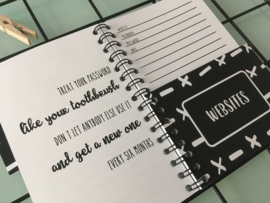 TREAT YOUR PASSWORD
like your toothbrush
DON'T LET ANYBODY ELSE USE IT
and get a new one
EVERY SIX MONTHS
WEBSITES